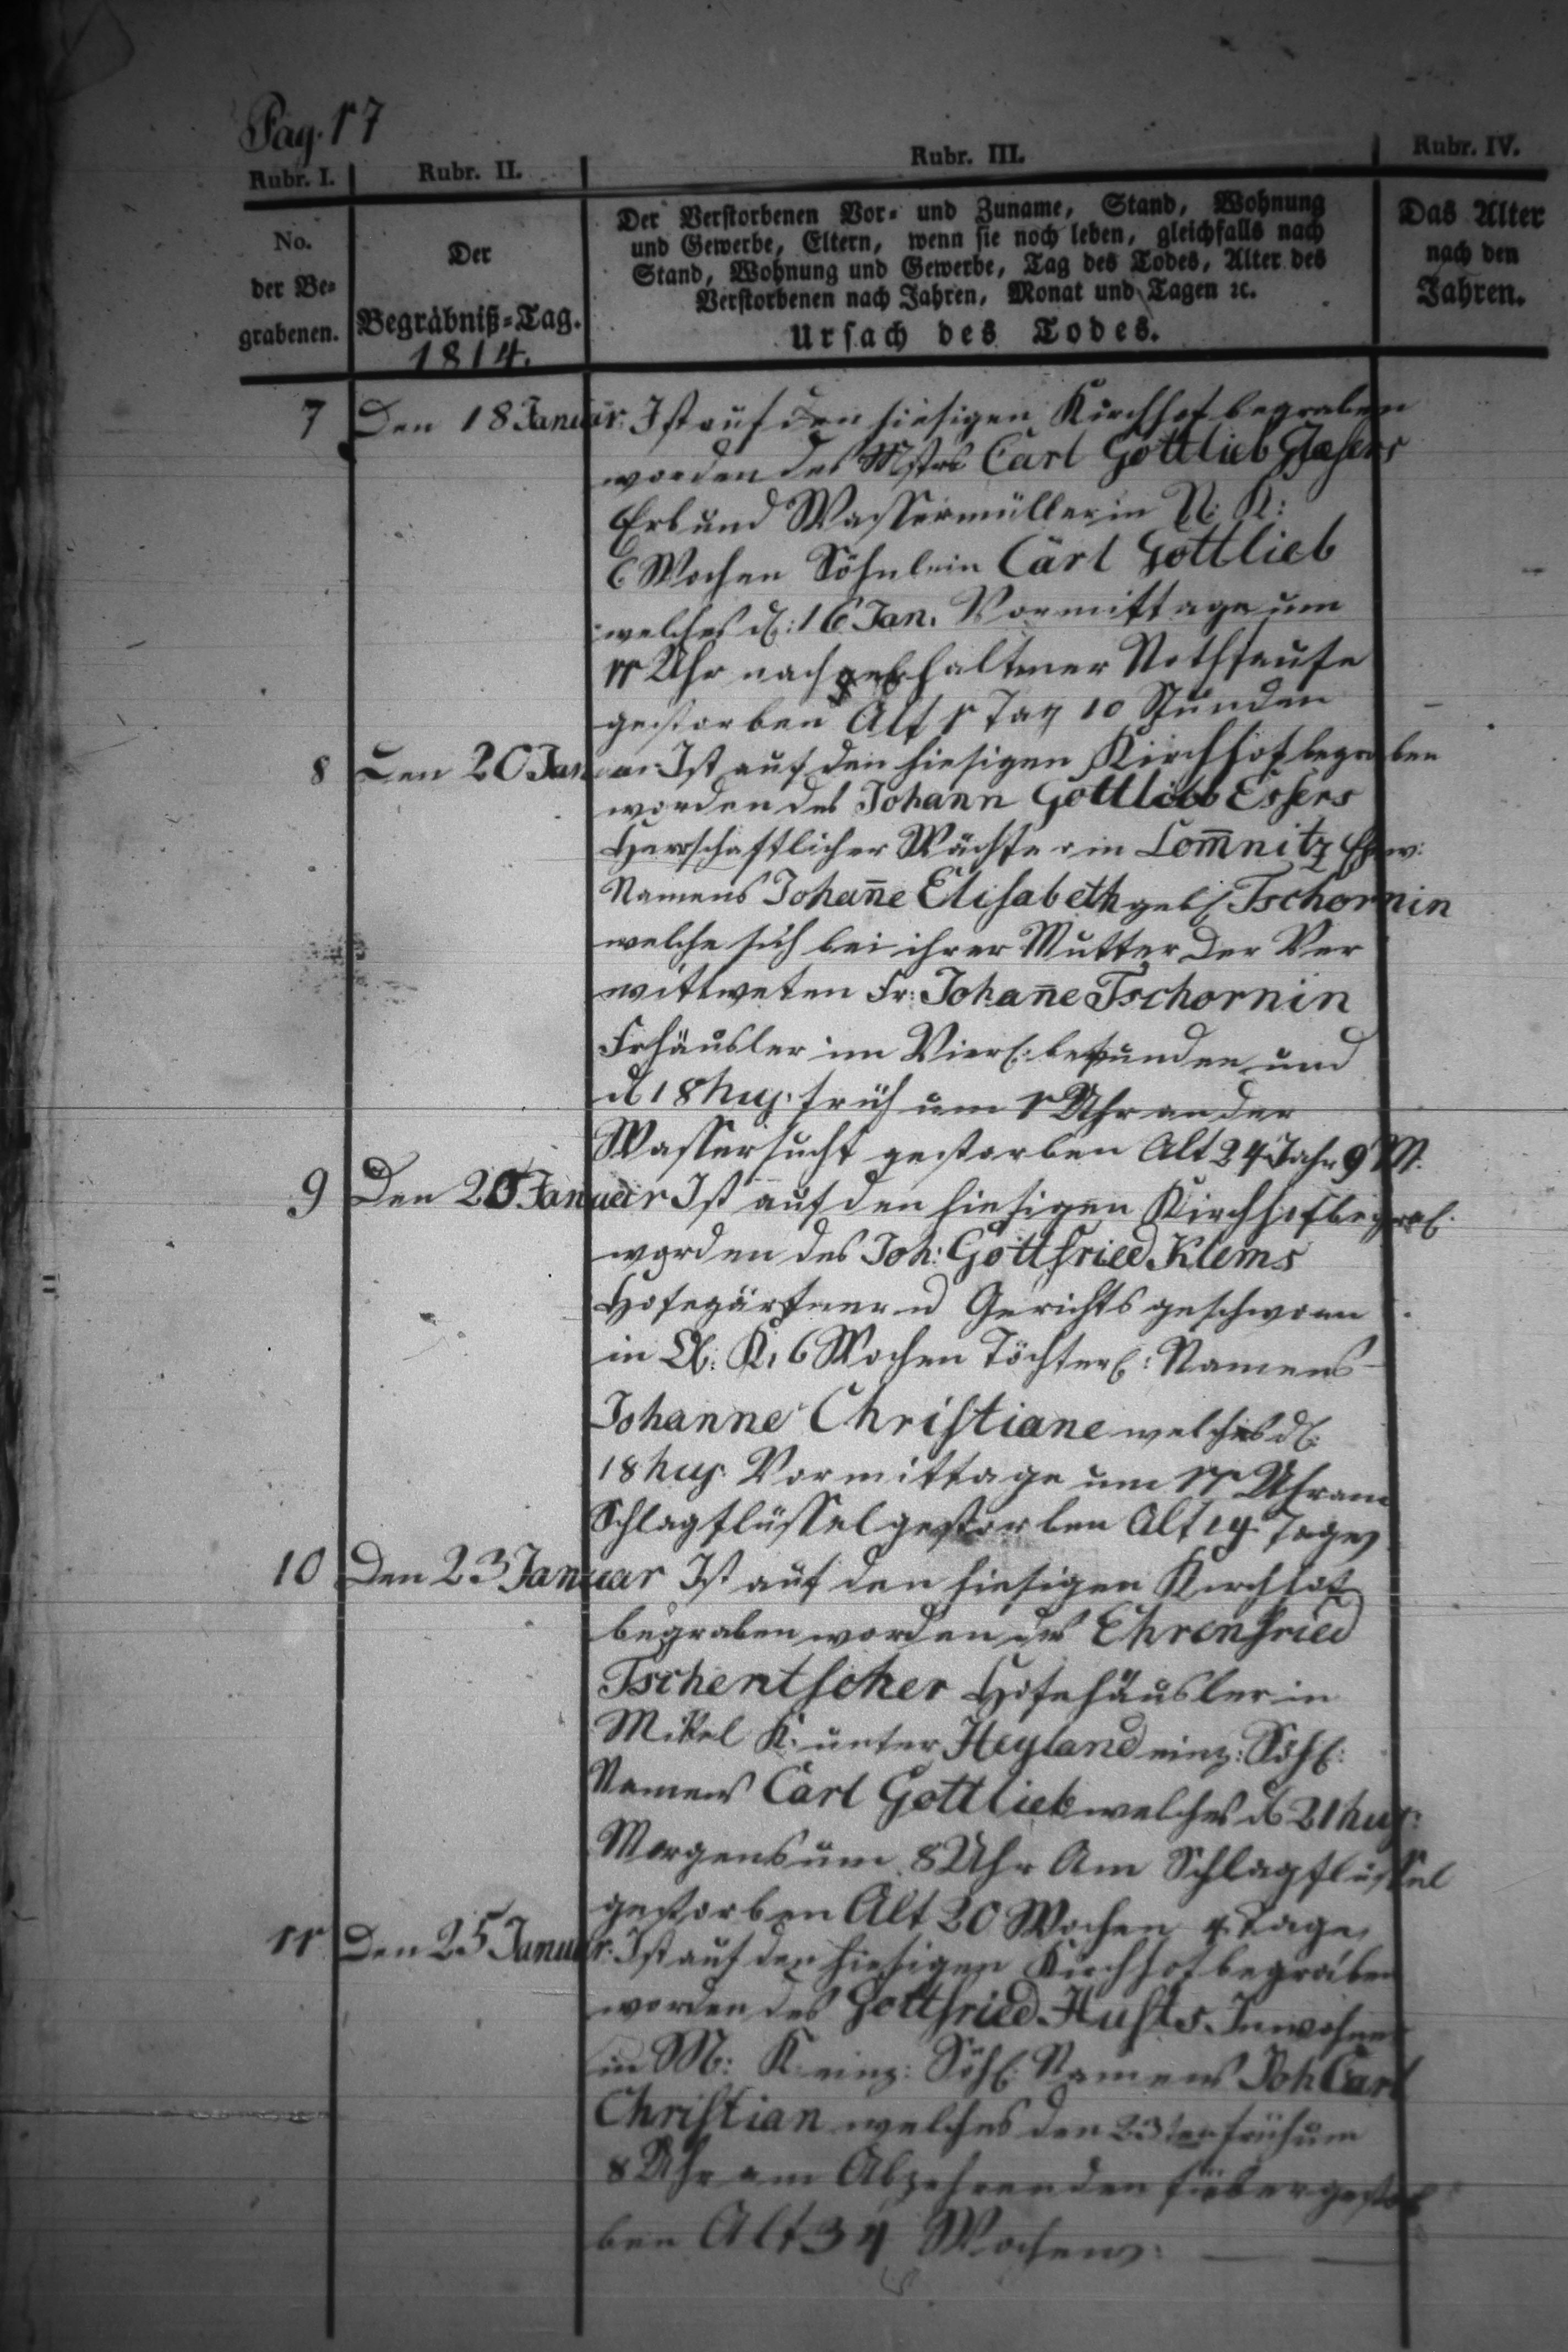 Pag. 17
Rubr. I. Rubr. II. Rubr. III. Rubr. IV.
No. der Be- grabenen.
Der Begräbniß-Tag. 1814.
Der Verstorbenen Vor- und Zuname, Stand, Wohnung
und Gewerbe, Eltern, wenn sie noch leben, gleichfalls nach
Stand, Wohnung und Gewerbe, Tag des Todes, Alter des
Verstorbenen nach Jahren, Monat und Tagen ꝛc.
Ursach des Todes.
Das Alter nach den Jahren.
7 Den 18 Januar. Ist auf den hiesigen Kirchhof begraben
worden des Mstrs Carl Gottlieb Glasers
Erb und Wassermüller in N: K:
6 Wochen Söhnlein Carl Gottlieb
welches d: 16 Jan. Vormittage um
11 Uhr nach erhaltener Nothtaufe
gestorben Alt 1 Tag 10 Stunden
8 Den 20 Januar Ist auf den hiesigen Kirchhof begraben
worden des Johann Gottlieb Essers
Herrschaftlicher Wächter in Lom̅nitz Ehew:
Namens Johan̅e Elisabeth geb: Tschornin
welche sich bei ihrer Mutter der Ver
wittweten Fr: Johan̅e Tschornin
Frhäusler im befunden und
d 18 huj. früh um 1 Uhr an der
Wassersucht gestorben Alt 24 Jahr 9 M.
9 Den 20 Januar Ist auf den hiesigen Kirchhof begrab:
worden des Joh: Gottfried Klems
Hofegärtner u Gerichtsgeschworn
in Ob: K: 6 Wochen Töchterl: Namens
Johanne Christiane welches d:
18 huj. Vormittage um 11 Uhr am
Schlagflüssel gestorben Alt 14 Tage
10 Den 23 Januar Ist auf den hiesigen Kirchhof
begraben worden des Ehrenfried
Tschentscher Hofehäusler in
Mittel K: unter Heyland einz: Söhl:
Namens Carl Gottlieb welches d 21 huj:
Morgens um 8 Uhr Am Schlagflüssel
gestorben Alt 20 Wochen 4 Tage
11 Den 25 Januar. Ist auf den hiesigen Kirchhof begraben
worden des Gottfried Hufts Inwohner
in M: K: einz: Söhl: Namens Joh Carl
Christian welches den 23ten früh um
8 Uhr am Abzehrenden fieber gestor
ben Alt 34 Wochen.